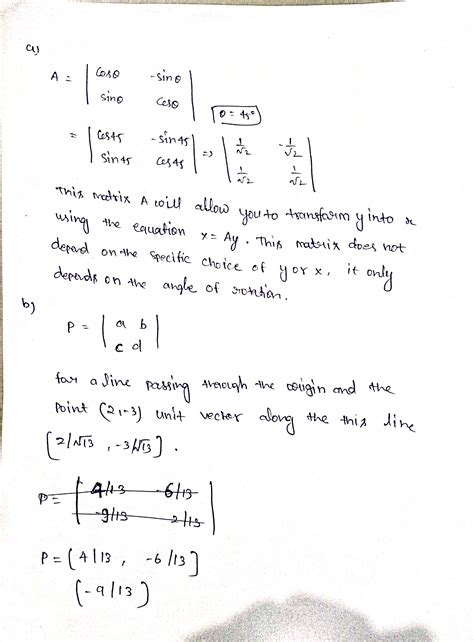 a)
A = | cosθ -sinθ |
| sinθ cosθ | θ = 45°
= | cos45 -sin45 | => | 1/√2 -1/√2 |
| sin45 cos45 | | 1/√2 1/√2 |
This matrix A will allow you to transform y into x
using the equation x = Ay. This matrix does not
depend on the specific choice of y or x, it only
depends on the angle of rotion.
b)
P = | a b |
| c d |
for a line passing through the origin and the
point (2,-3) unit vector along the this line
[2/√13, -3/√13].
P = | 4/13 -6/13 |
| -9/13 2/13 |
P = [4/13, -6/13]
(-9/13)